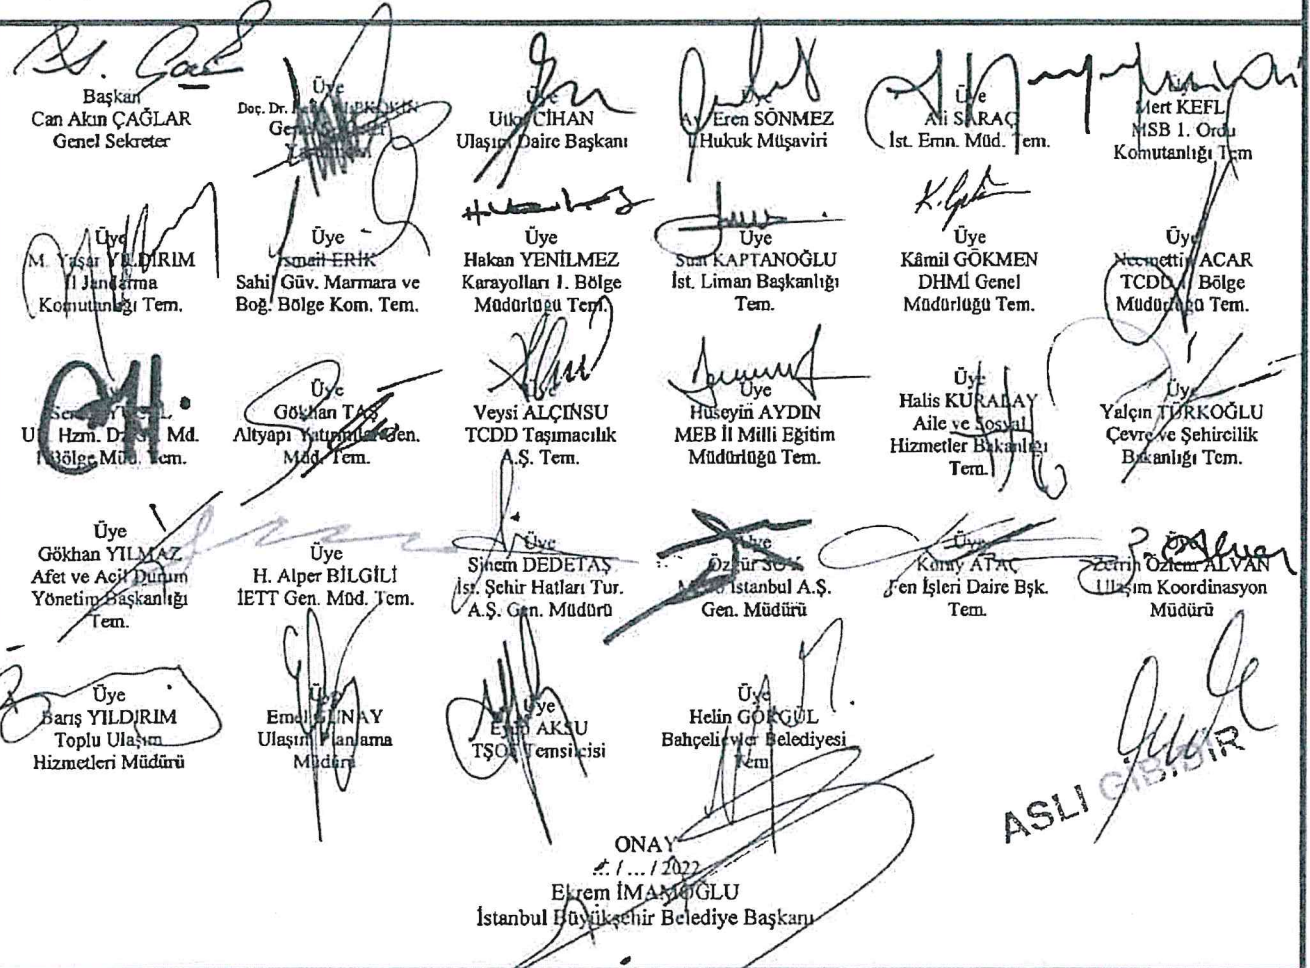 Başkan
Can Akın ÇAĞLAR
Genel Sekreter
Üye
Doç. Dr.
Üye
Utku CİHAN
Ulaşım Daire Başkanı
Üye
Eren SÖNMEZ
1.Hukuk Müşaviri
Üye
Ali SARAÇ
İst. Emn. Müd. Tem.
Mert KEFLİ
MSB 1. Ordu
Komutanlığı Tem
Üye
M. Yaşar YILDIRIM
İl Jandarma
Komutanlığı Tem.
Üye
İsmail ERİK
Sahil Güv. Marmara ve
Boğ. Bölge Kom. Tem.
Üye
Hakan YENİLMEZ
Karayolları 1. Bölge
Müdürlüğü Tem.
Üye
Suat KAPTANOĞLU
İst. Liman Başkanlığı
Tem.
Üye
Kâmil GÖKMEN
DHMİ Genel
Müdürlüğü Tem.
Üye
Necmettin ACAR
TCDD 1. Bölge
Müdürlüğü Tem.
Hzm. Md.
Bölge Müd. Tem.
Üye
Gökhan TAŞ
Altyapı Yatırımlar Gen.
Müd. Tem.
Üye
Veysi ALÇINSU
TCDD Taşımacılık
A.Ş. Tem.
Üye
Hüseyin AYDIN
MEB İl Milli Eğitim
Müdürlüğü Tem.
Üye
Halis KURALAY
Aile ve Sosyal
Hizmetler Bakanlığı
Tem.
Üye
Yalçın TÜRKOĞLU
Çevre ve Şehircilik
Bakanlığı Tem.
Üye
Gökhan YILMAZ
Afet ve Acil Durum
Yönetim Başkanlığı
Tem.
Üye
H. Alper BİLGİLİ
İETT Gen. Müd. Tem.
Üye
Sinem DEDETAŞ
İst. Şehir Hatları Tur.
A.Ş. Gen. Müdürü
Üye
Özgür SOY
Metro İstanbul A.Ş.
Gen. Müdürü
Üye
Koray ATAÇ
Fen İşleri Daire Bşk.
Tem.
Zerrin Özlem ALVAN
Ulaşım Koordinasyon
Müdürü
Üye
Barış YILDIRIM
Toplu Ulaşım
Hizmetleri Müdürü
Üye
Emel GÜNAY
Ulaşım Planlama
Müdürü
Üye
Eyüp AKSU
TŞOF Temsilcisi
Üye
Helin GÖKGÜL
Bahçelievler Belediyesi
Tem
ASLI GİBİDİR
ONAY
... / ... / 2022
Ekrem İMAMOĞLU
İstanbul Büyükşehir Belediye Başkanı